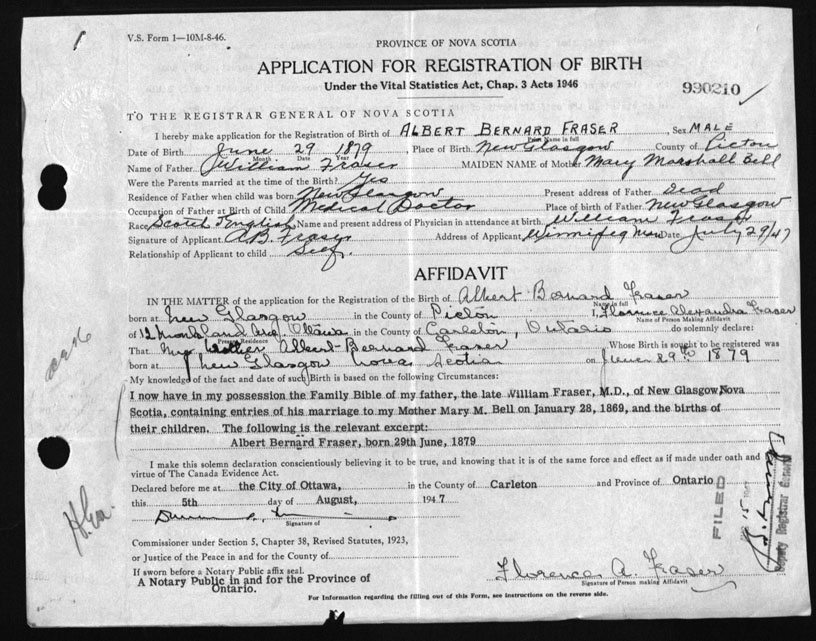 V.S. Form 1—10M-8-46.
PROVINCE OF NOVA SCOTIA
APPLICATION FOR REGISTRATION OF BIRTH
Under the Vital Statistics Act, Chap. 3 Acts 1946
930210
TO THE REGISTRAR GENERAL OF NOVA SCOTIA
I hereby make application for the Registration of Birth of ALBERT BERNARD FRASER, Sex MALE
Print Name in full
Date of Birth June 29 1879, Place of Birth New Glasgow County of Pictou
Month Date Year
Name of Father William Fraser MAIDEN NAME of Mother Mary Marshall Bell
Were the Parents married at the time of the Birth? Yes
Residence of Father when child was born New Glasgow Present address of Father Dead
Occupation of Father at Birth of Child Medical Doctor Place of birth of Father New Glasgow
Race Scotch & English Name and present address of Physician in attendance at birth William Fraser
Signature of Applicant A.B. Fraser Address of Applicant Winnipeg Man Date July 29/47
Relationship of Applicant to child Self
AFFIDAVIT
IN THE MATTER of the application for the Registration of Birth of Albert Bernard Fraser
Name in full
born at New Glasgow in the County of Pictou I, Florence Alexandra Fraser
Name of Person Making Affidavit
of 12 Ave, Ottawa in the County of Carleton, Ontario do solemnly declare:
Present Residence
That my brother Albert Bernard Fraser Whose Birth is sought to be registered was
born at New Glasgow Nova Scotia on June 29th 1879
My knowledge of the fact and date of such Birth is based on the following Circumstances:
I now have in my possession the Family Bible of my father, the late William Fraser, M.D., of New Glasgow, Nova
Scotia, containing entries of his marriage to my Mother Mary M. Bell on January 28, 1869, and the births of
their children. The following is the relevant excerpt:
Albert Bernard Fraser, born 29th June, 1879
I make this solemn declaration conscientiously believing it to be true, and knowing that it is of the same force and effect as if made under oath and
virtue of The Canada Evidence Act.
Declared before me at the City of Ottawa, in the County of Carleton and Province of Ontario
this 5th day of August, 1947
Signature of
Commissioner under Section 5, Chapter 38, Revised Statutes, 1923,
or Justice of the Peace in and for the County of
If sworn before a Notary Public affix seal.
A Notary Public in and for the Province of
Ontario.
Florence A. Fraser
Signature of Person making Affidavit
For Information regarding the filling out of this Form, see instructions on the reverse side.
FILED
Deputy Registrar General